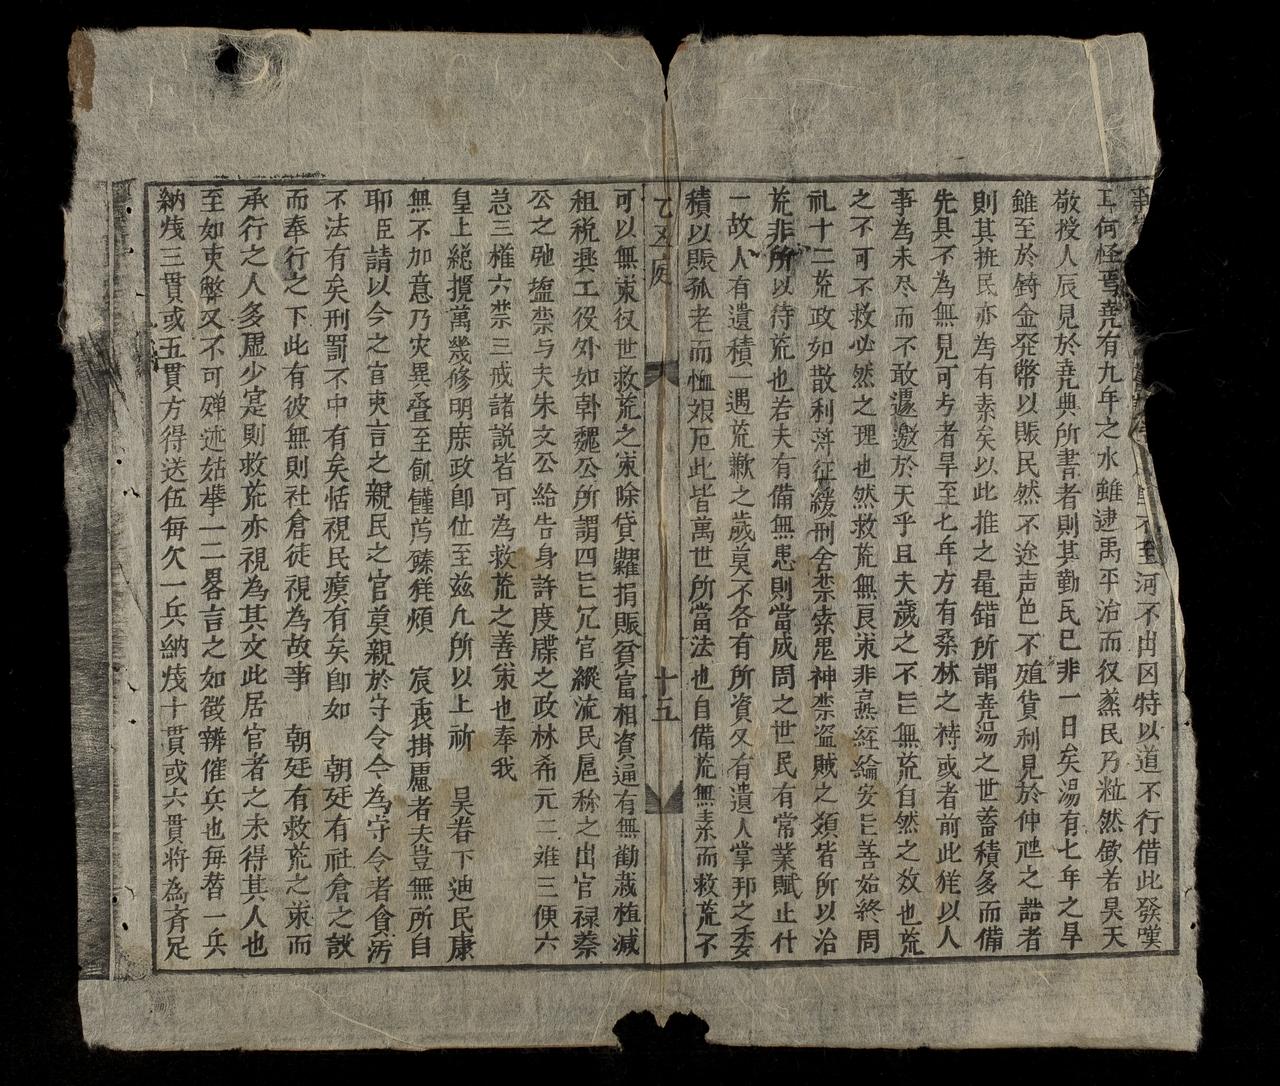 至河不出図特以道不行借此発嘆
耳何怪焉堯有九年之水雖逮禹平治而後蒸民乃粒然欽若昊天
敬授人辰見於堯典所書者則其勤民已非一日矣湯有七年之旱
雖至於鋳金発幣以賑民然不迩声色不殖貨利見於仲虺之誥者
則其救民亦為有素矣以此推之鼂錯所謂堯湯之世蓄積多而備
先具不為無見可考者旱至七年方有桑林之祷或者前此犹以人
事為未尽而不敢遽邀於天乎且夫歳之不㫖無荒自然之效也荒
之不可不救必然之理也然救荒無良策非無経綸安㫖善始終周
礼十二荒政如散利薄征緩刑舎禁索鬼神禁盗賊之類皆所以治
荒非所以待荒也若夫有備無患則當成周之世民有常業賦止什
一故人有遺積一遇荒歉之歳莫不各有所資又有遺人掌邦之委
積以賑孤老而恤艱厄此皆萬世所當法也自備荒無素而救荒不
乙丑庭 十五
可以無策後世救荒之策除貸糶捐賑貧富相資逼有無勧栽植減
租税興工役外如韓魏公所謂四㫖冗官縦流民扈称之出官禄蔡
公之弛塩禁与夫朱文公給告身許度牒之政林希元二难三便六
急三権六禁三戒諸説皆可為救荒之善策也奉我
皇上総攬萬幾修明庶政即位至玆凢所以上祈 昊眷下迪民康
無不加意乃灾異叠至飢饉荐臻犹煩 宸衷掛慮者夫豈無所自
耶臣請以今之官吏言之親民之官莫親於守令今為守令者貪汚
不法有矣刑罰不中有矣恬視民瘼有矣即如 朝廷有社倉之設
而奉行之下此有彼無則社倉徒視為故事 朝廷有救荒之策而
承行之人多虚少寔則救荒亦視為具文此居官者之未得其人也
至如吏弊又不可殫述姑挙一二畧言之如徴辨催兵也毎替一兵
納㦮三貫或五貫方得送伍毎欠一兵納㦮十貫或六貫将為斉足